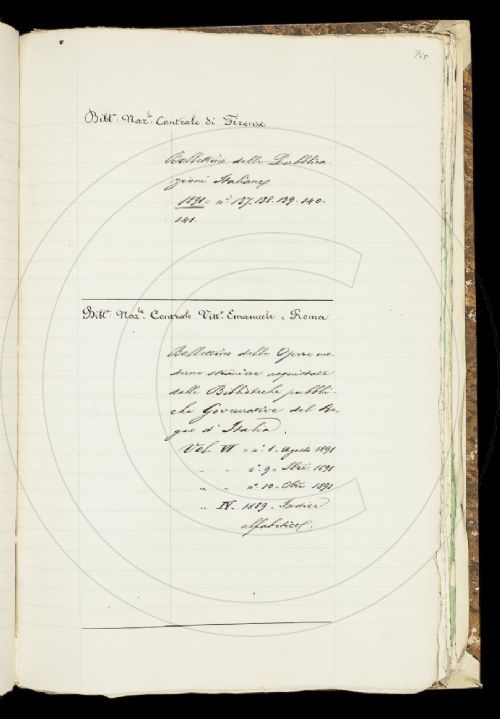 965
Bibl.ª Naz.le Centrale di Firenze
Bollettino delle Pubblica-
zioni Italiane
1891 = n.i 137-138-139-140-
141
Bibl.ª Naz.le Centrale Vitt.º Emanuele - Roma
Bollettino delle Opere mo-
derne straniere acquistate
dalle Biblioteche pubbli-
che Governative del Re-
gno d'Italia.
Vol. VI = n.º 8 - Agosto 1891
" " n.º 9 - 7bre 1891
" " n.º 10 - 8bre 1891
" IV. 1889 - Indice
alfabetico.